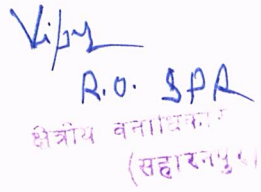 Vipy
R.O. SPR
क्षेत्रीय वनाधिकारी
(सहारनपुर)